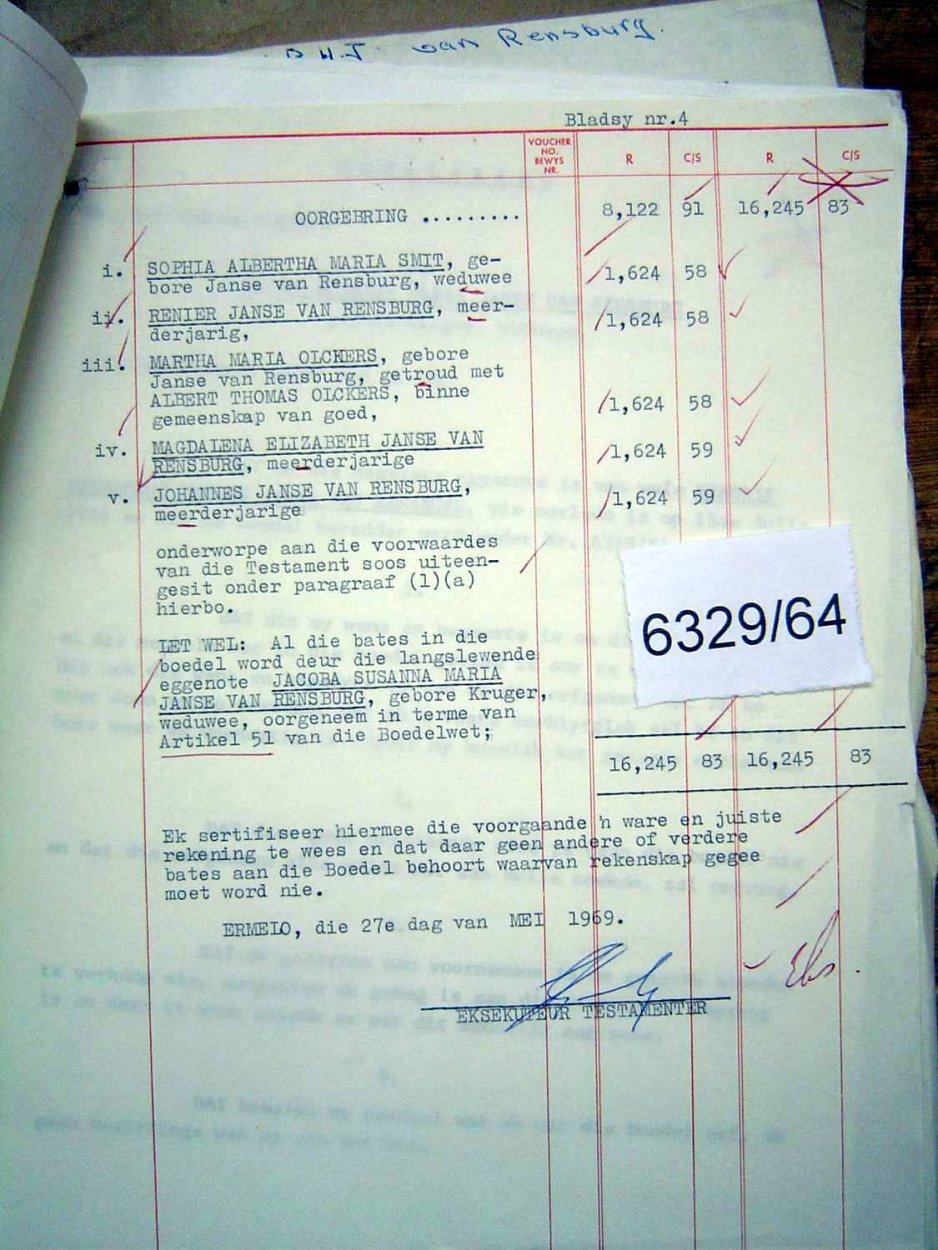 van Rensburg.
Bladsy nr.4
VOUCHER NO. BEWYS NR. R C/S R C/S
OORGEBRING ......... 8,122 91 16,245 83
i. SOPHIA ALBERTHA MARIA SMIT, ge-
bore Janse van Rensburg, weduwee 1,624 58
ii. RENIER JANSE VAN RENSBURG, meer- 1,624 58
derjarig,
iii. MARTHA MARIA OLCKERS, gebore
Janse van Rensburg, getroud met
ALBERT THOMAS OLCKERS, binne 1,624 58
gemeenskap van goed,
iv. MAGDALENA ELIZABETH JANSE VAN 1,624 59
RENSBURG, meerderjarige
v. JOHANNES JANSE VAN RENSBURG, 1,624 59
meerderjarige
onderworpe aan die voorwaardes
van die Testament soos uiteen-
gesit onder paragraaf (1)(a)
hierbo.
6329/64
LET WEL: Al die bates in die
boedel word deur die langslewende
eggenote JACOBA SUSANNA MARIA
JANSE VAN RENSBURG, gebore Kruger,
weduwee, oorgeneem in terme van
Artikel 51 van die Boedelwet;
16,245 83 16,245 83
Ek sertifiseer hiermee die voorgaande 'n ware en juiste
rekening te wees en dat daar geen andere of verdere
bates aan die Boedel behoort waarvan rekenskap gegee
moet word nie.
ERMELO, die 27e dag van MEI 1969.
EKSEKUTEUR TESTAMENTER